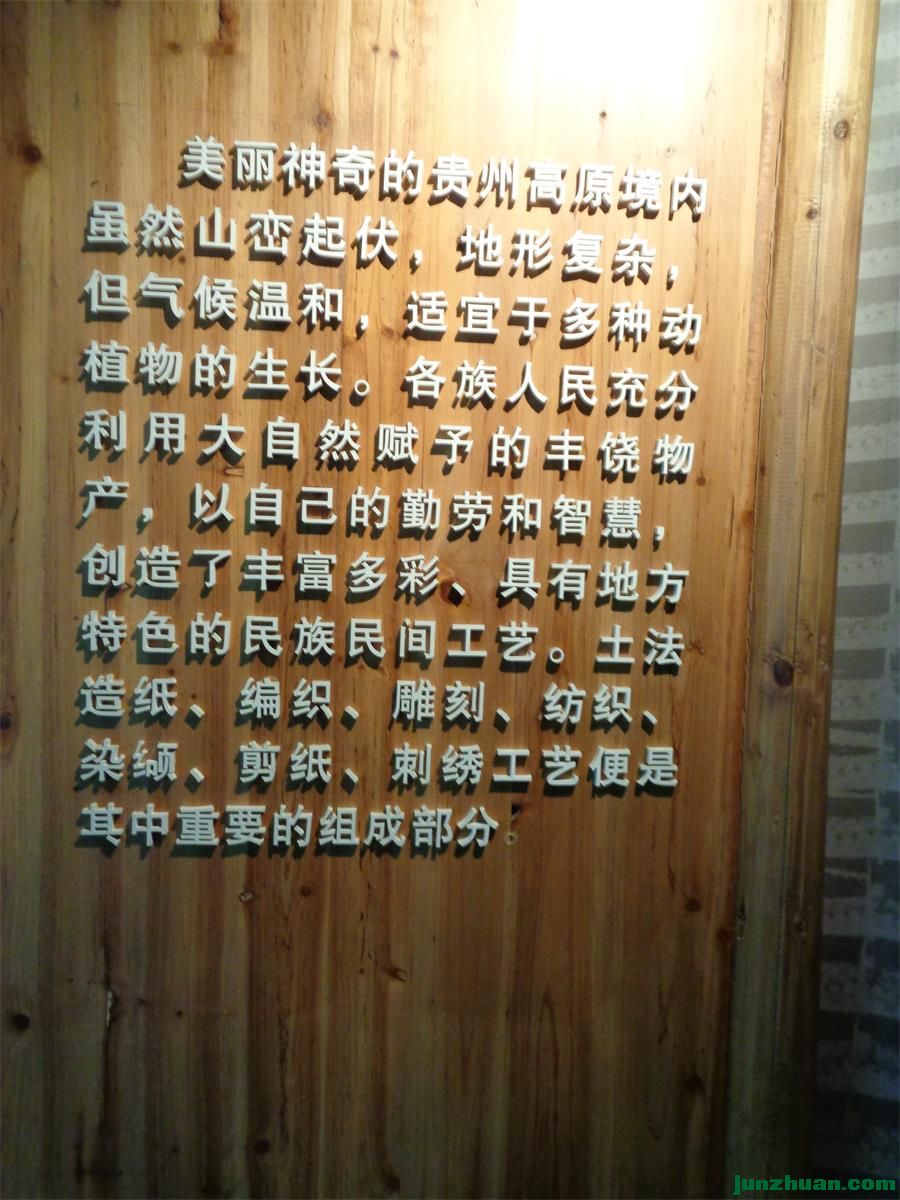 美丽神奇的贵州高原境内
虽然山峦起伏，地形复杂，
但气候温和，适宜于多种动
植物的生长。各族人民充分
利用大自然赋予的丰饶物
产，以自己的勤劳和智慧，
创造了丰富多彩、具有地方
特色的民族民间工艺。土法
造纸、编织、雕刻、纺织、
染缬、剪纸、刺绣工艺便是
其中重要的组成部分。
junzhuan.com